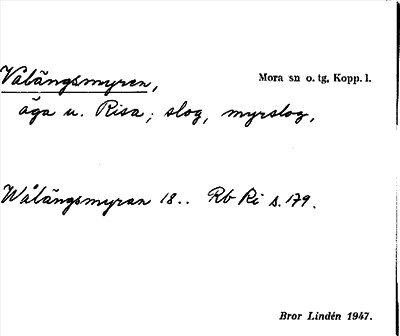 Valängsmyren, Mora sn o. tg, Kopp. l.
äga u. Risa; slog, myrslog,
Wålängsmyran 18.. Rb Ri s. 179.
Bror Lindén 1947.